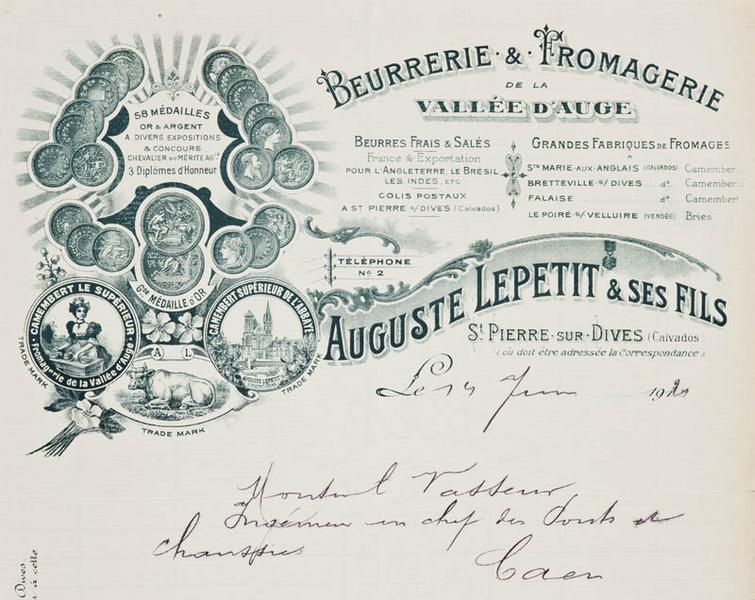 BEURRERIE·&·FROMAGERIE
DE LA
VALLÉE D'AUGE
58 MÉDAILLES
OR & ARGENT
A DIVERS EXPOSITIONS
& CONCOURS
CHEVALIER DU MÉRITE AGLE
3 Diplômes d'Honneur
BEURRES FRAIS & SALÉS
France & Exportation
POUR L'ANGLETERRE LE BRÉSIL
LES INDES, ETC
COLIS POSTAUX
A ST PIERRE S/DIVES (Calvados)
GRANDES FABRIQUES DE FROMAGES
A
STE MARIE-AUX-ANGLAIS (CALVADOS) Camember
BRETTEVILLE-S/DIVES do Camember
FALAISE do Camember
LE POIRÉ-S/VELLUIRE (VENDÉE) Bries
TÉLÉPHONE
No 2
Gde MÉDAILLE d'OR
AUGUSTE LEPETIT & SES FILS
ST PIERRE-SUR-DIVES (Calvados)
(où doit être adressée la Correspondance)
CAMEMBERT LE SUPÉRIEUR
Fromagerie de la Vallée d'Auge
TRADE MARK
CAMEMBERT SUPÉRIEUR DE L'ABBAYE
AUGUSTE LEPETIT
TRADE MARK
A L
TRADE MARK
Le 14 Juin 192
Vasseur
Ingénieur en chef des Ponts et
chaussées
Caen
Dives
à cette